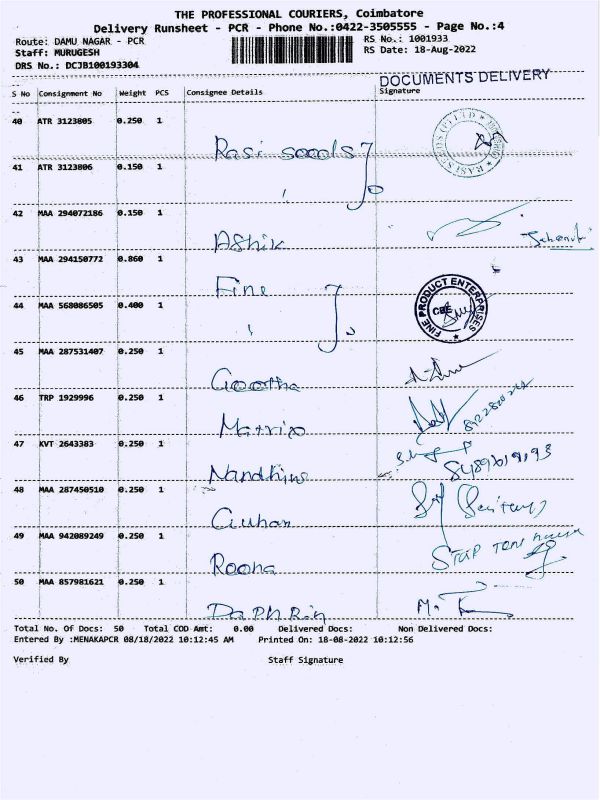 THE PROFESSIONAL COURIERS, Coimbatore
Delivery Runsheet - PCR - Phone No.:0422-3505555 - Page No.:4
Route: DAMU NAGAR - PCR
RS No.: 1001933
Staff: MURUGESH
RS Date: 18-Aug-2022
DRS No.: DCJB100193304
DOCUMENTS DELIVERY
S No Consignment No Weight PCS Consignee Details Signature
40 ATR 3123805 0.250 1
Rasi seeds
41 ATR 3123806 0.150 1
42 MAA 294072186 0.150 1
Ashik
43 MAA 294150772 0.860 1
Fine
44 MAA 568086505 0.400 1
FINE PRODUCT ENTERPRISES
CBE
45 MAA 287531407 0.250 1
Geetha
46 TRP 1929996 0.250 1
Matrix
47 KVT 2643383 0.250 1
Nandhini
48 MAA 287450510 0.250 1
Guhan
49 MAA 942089249 0.250 1
Roona
50 MAA 857981621 0.250 1
Total No. Of Docs: 50 Total COD Amt: 0.00 Delivered Docs: Non Delivered Docs:
Entered By :MENAKAPCR 08/18/2022 10:12:45 AM Printed On: 18-08-2022 10:12:56
Verified By Staff Signature